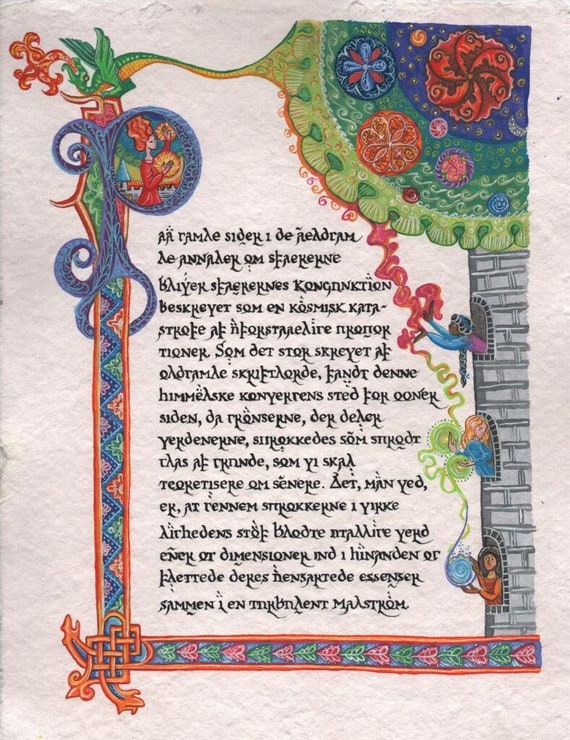 På gamle sider i de aeldgam
le annaler om sfaererne
bliver sfaerernes konjunktion
beskrevet som en kosmisk kata-
strofe af uforstaaelige propor
tioner. Som det stor skrevet af
oldgamle skriftlorde, fandt denne
himmelske konvergens sted for ooner
siden, da gronserne, der deler
verdenerne, sprokkedes som sprodt
glas af grunde, som vi skal
teoretisere om senere. Det, man ved,
er, at gennem sprokkerne i virke
lighedens stof blodte utallige verd
ener og dimensioner ind i hinanden og
flettede deres uensartede essenser
sammen i en turbulent malstrom.